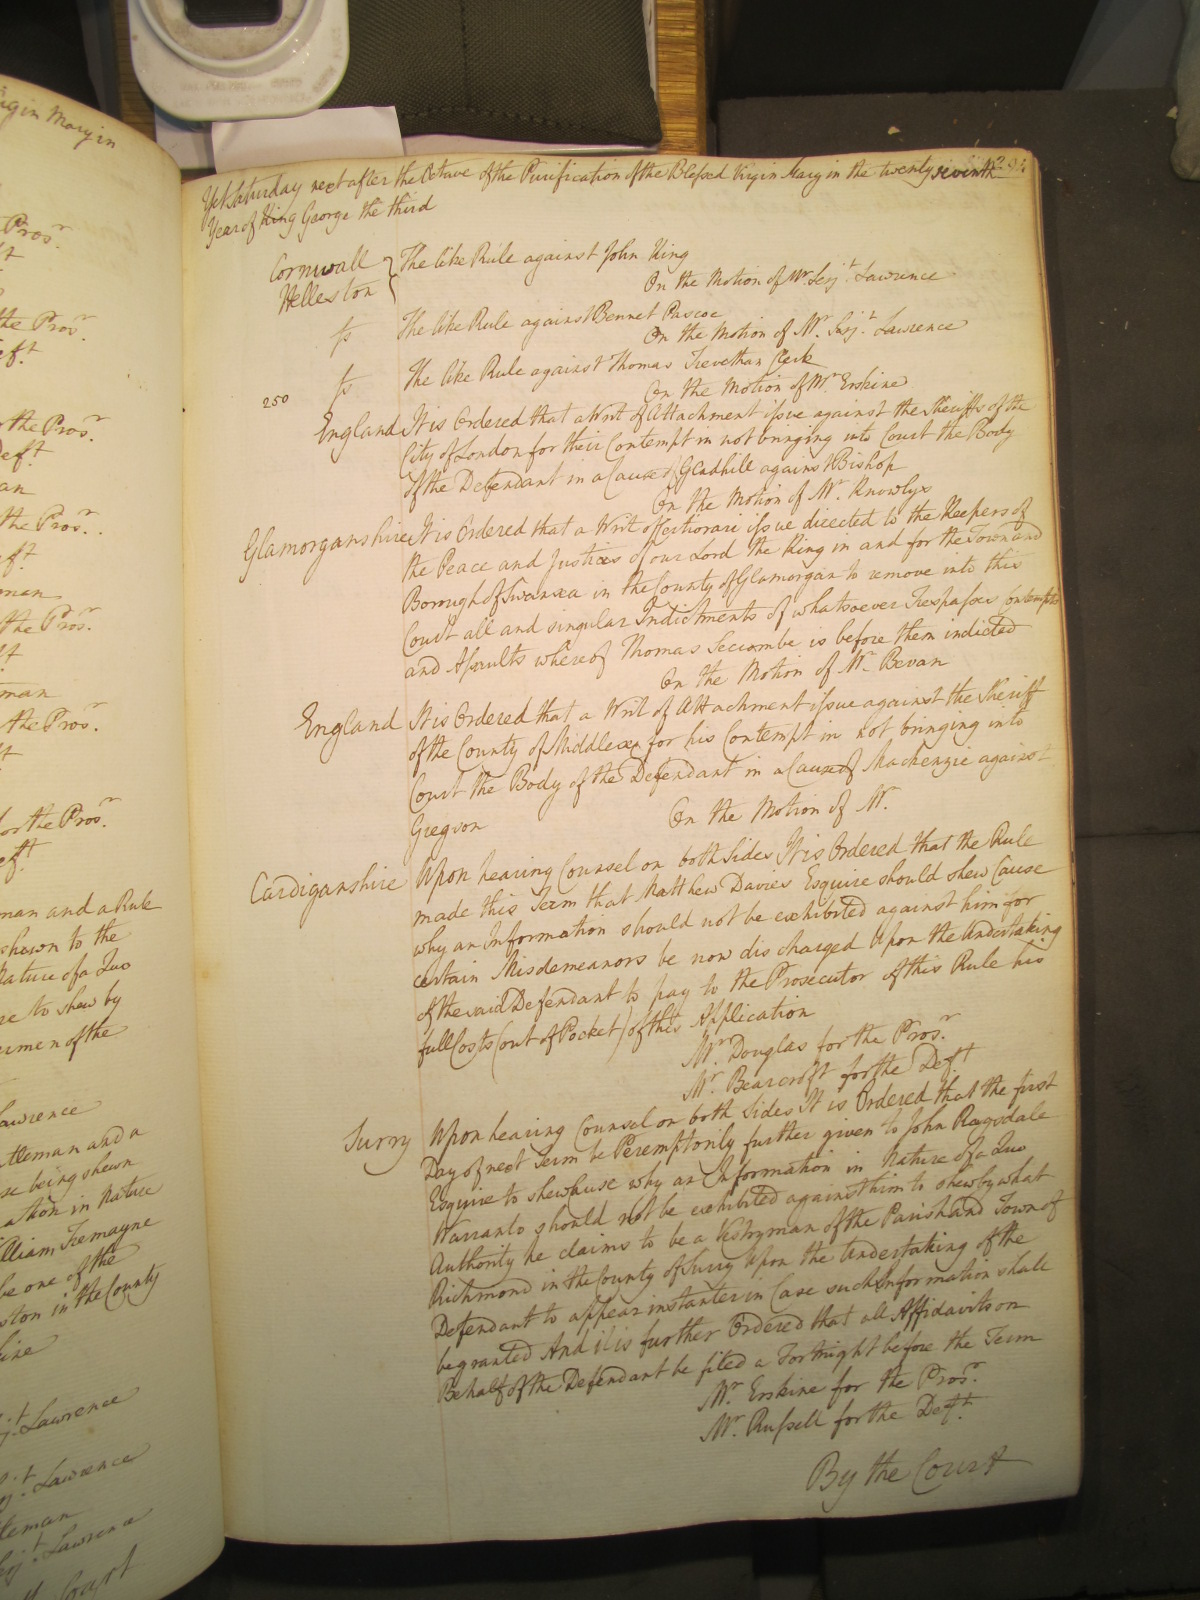 igin Mary in
Pros.r
ft
the Pros.r
ef.t
the Pros.r
Def.t
an
the Pros.r
ef.t
man
the Pros.r
man
the Pros.r
for the Pros.r
ef.t
man and a Rule
shewn to the
Nature of a Quo
re to shew by
ermen of the
Lawrence
ntleman and a
se being shewn
ation in Nature
lliam Tremayne
be one of the
ston in the County
ine
j.t Lawrence
j.t Lawrence
tleman
Serj.t Lawrence
Court
Yet Saturday next after the Octave of the Purification of the Blessed Virgin Mary in the twenty seventh
Year of King George the third
Cornwall The like Rule against John King
Helleston On the Motion of Mr. Serj.t Lawrence
ss The like Rule against Bennet Pascoe
On the Motion of Mr. Serj.t Lawrence
ss The like Rule against Thomas Trevethan Clerk
On the Motion of Mr. Erskine
250
England It is Ordered that a Writ of Attachment issue against the Sheriffs of the
City of London for their Contempt in not bringing into Court the Body
Of the Defendant in a Cause Gladhill against Bishop
On the Motion of Mr. Knowlys
Glamorganshire It is Ordered that a Writ of Certiorari issue directed to the Keepers of
the Peace and Justices of our Lord the King in and for the Town and
Borough of Swansea in the County of Glamorgan to remove into this
Court all and singular Indictments of whatsoever Trespasses Contempts
and Assaults whereof Thomas Seccombe is before them indicted
On the Motion of Mr. Bevan
England It is Ordered that a Writ of Attachment issue against the Sheriff
of the County of Middlesex for his Contempt in not bringing into
Court the Body of the Defendant in a Cause of Mackenzie against
Gregson On the Motion of Mr.
Cardiganshire Upon hearing Counsel on both Sides It is Ordered that the Rule
made this Term that Matthew Davies Esquire should shew Cause
why an Information should not be exhibited against him for
certain Misdemeanors be now discharged Upon the Undertaking
of the said Defendant to pay to the Prosecutor of this Rule his
full Costs (out of Pocket) of this Application
Mr. Douglas for the Pros.r
Mr. Bearcroft for the Def.t
Surry Upon hearing Counsel on both Sides It is Ordered that the first
Day of next Term be Peremptorily further given to John Ragsdale
Esquire to shew Cause why an Information in Nature of a Quo
Warranto should not be exhibited against him to shew by what
Authority he claims to be a Vestryman of the Parish and Town of
Richmond in the County of Surry Upon the Undertaking of the
Defendant to appear instanter in Case such Information shall
be granted And it is further Ordered that all Affidavits on
Behalf of the Defendant be filed a Fortnight before the Term
Mr. Erskine for the Pros.r
Mr. Russell for the Def.t
By the Court